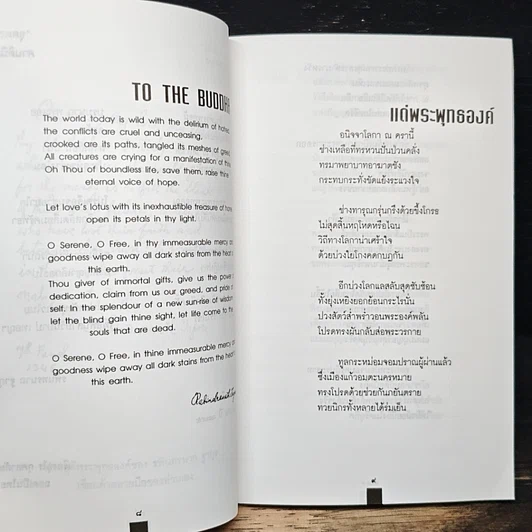 TO THE BUDDHA
The world today is wild with the delirium of hatred,
the conflicts are cruel and unceasing,
crooked are its paths, tangled its meshes of greed.
All creatures are crying for a manifestation of thine,
Oh Thou of boundless life, save them, raise thine
eternal voice of hope.
Let love's lotus with its inexhaustible treasure of
open its petals in thy light.
O Serene, O Free, in thy immeasurable mercy and
goodness wipe away all dark stains from the heart of
this earth.
Thou giver of immortal gifts, give us the power of
dedication, claim from us our greed, and pride of
self. In the splendour of a new sun-rise of wisdom
let the blind gain thine sight, let life come to the
souls that are dead.
O Serene, O Free, in thine immeasurable mercy and
goodness wipe away all dark stains from the heart of
this earth.
๘
แด่พระพุทธองค์
อนิจจาโลกา ณ ครานี้
ช่างเหลือที่ทรหวนปั่นป่วนคลั่ง
ทรมาพยาบาทอาฆาตชัง
กระทบกระทั่งขัดแย้งระแวงใจ
ช่างทารุณกรุ่นกรึงด้วยขึ้งโกรธ
ไม่สุดสิ้นหฤโหดหรือไฉน
วิถีทางโลกาน่าเศร้าใจ
ด้วยบ่วงใยโกงคดกบฏกัน
อีกบ่วงโลกแลสลับสุดซับซ้อน
ทั้งยุ่งเหยิงยอกย้อนกระไรนั่น
ปวงสัตว์ล่ำพร่ำวอนพระองค์พลัน
โปรดทรงผันกลับส่อพระวรกาย
ทูลกระหม่อมจอมปราณผู้ผ่านแล้ว
ซึ่งเมืองแก้วอมตะนครหมาย
ทรงโปรดด้วยช่วยกันภยันตราย
ทวยนิกรทั้งหลายได้ร่มเย็น
๙